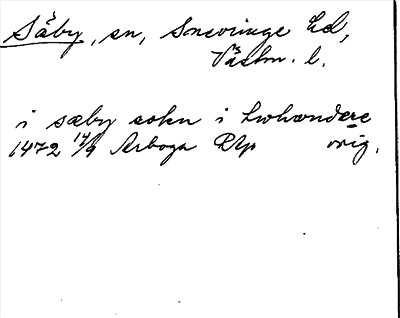 Säby, sn, Snevringe hd,
Västm. l.
i sæby sokn i twhændere
1472 14/9 Arboga RAp orig.